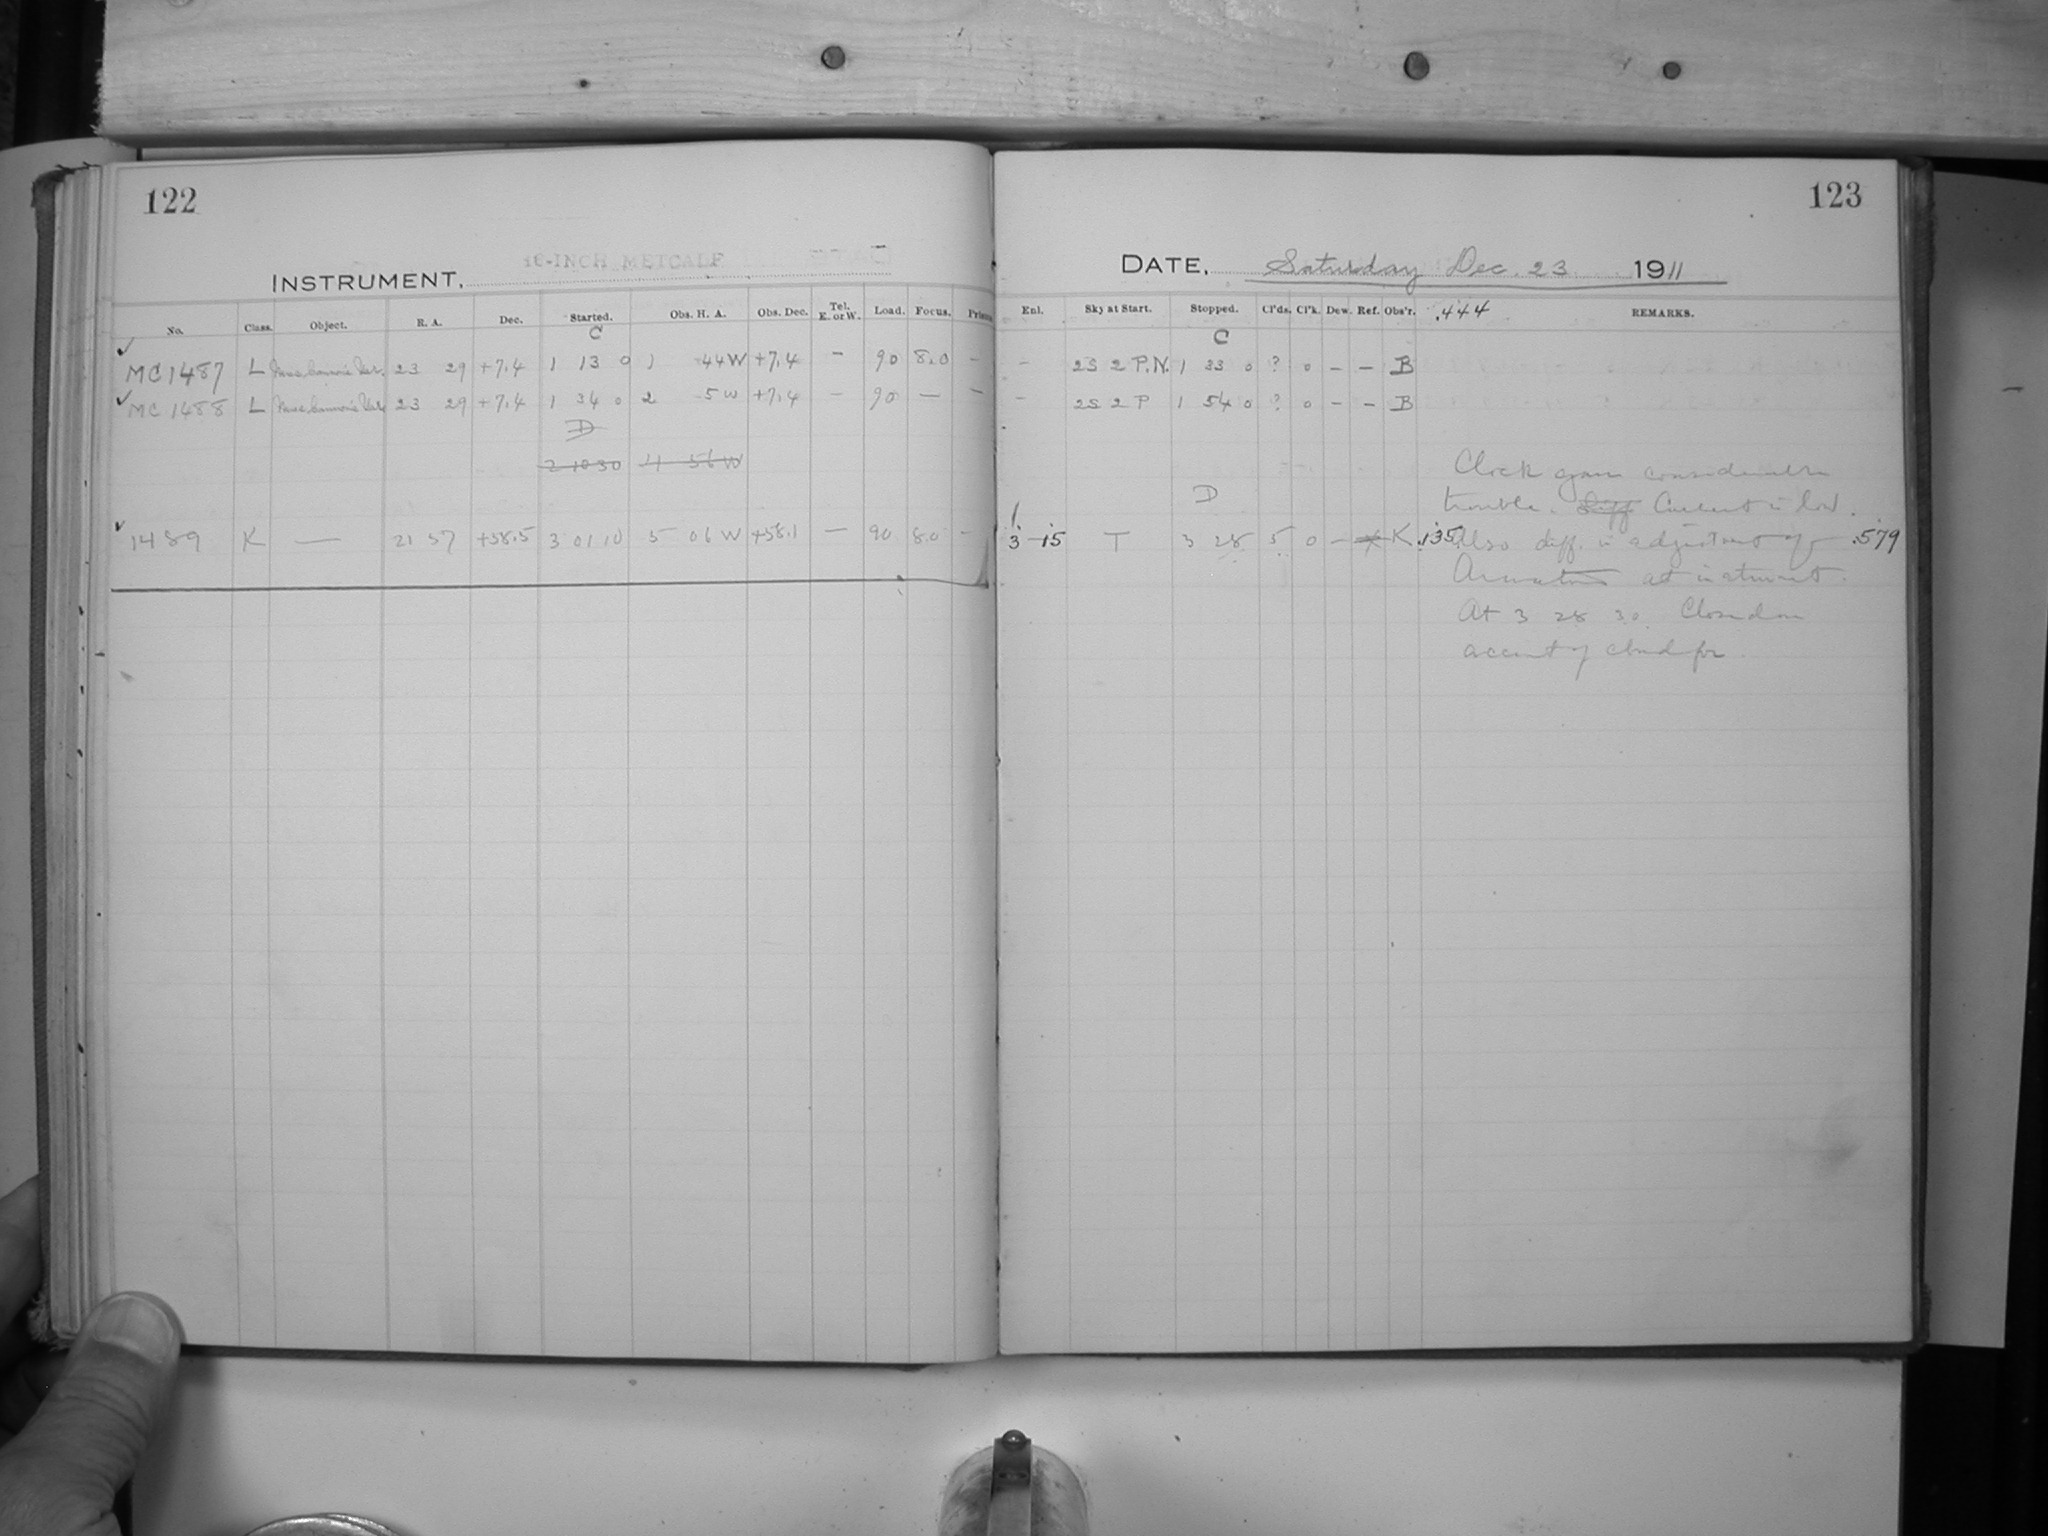 122
INSTRUMENT, 16-INCH METCALF
No. Class. Object. R. A. Dec. Started. Obs. H. A. Obs. Dec. Tel. E. or W. Load. Focus. Prism
C
MC 1487 L 23 29 +7.4 1 13 0 1 44 W +7.4 - 90 8.0 -
MC 1488 L 23 29 +7.4 1 34 0 2 5 W +7.4 - 90 - -
D
2 10 30 4 56 W
1489 K — 21 57 +58.5 3 01 10 5 06 W +58.1 - 90 8.0 -
123
DATE, Saturday Dec. 23 1911
Enl. Sky at Start. Stopped. Cl'ds. Cl'k. Dew. Ref. Obs'r. .444 REMARKS.
C
- 2S 2 P.N. 1 33 0 ? 0 - - B
- 2S 2 P 1 54 0 ? 0 - - B
D
3 -15 T 3 28 5 0 - K .135 .579
Clock gave considerable
trouble. Diff Current is low.
Also diff. in adjustment of
at instrument.
At 3 28 30 Closed on
account of cloud for